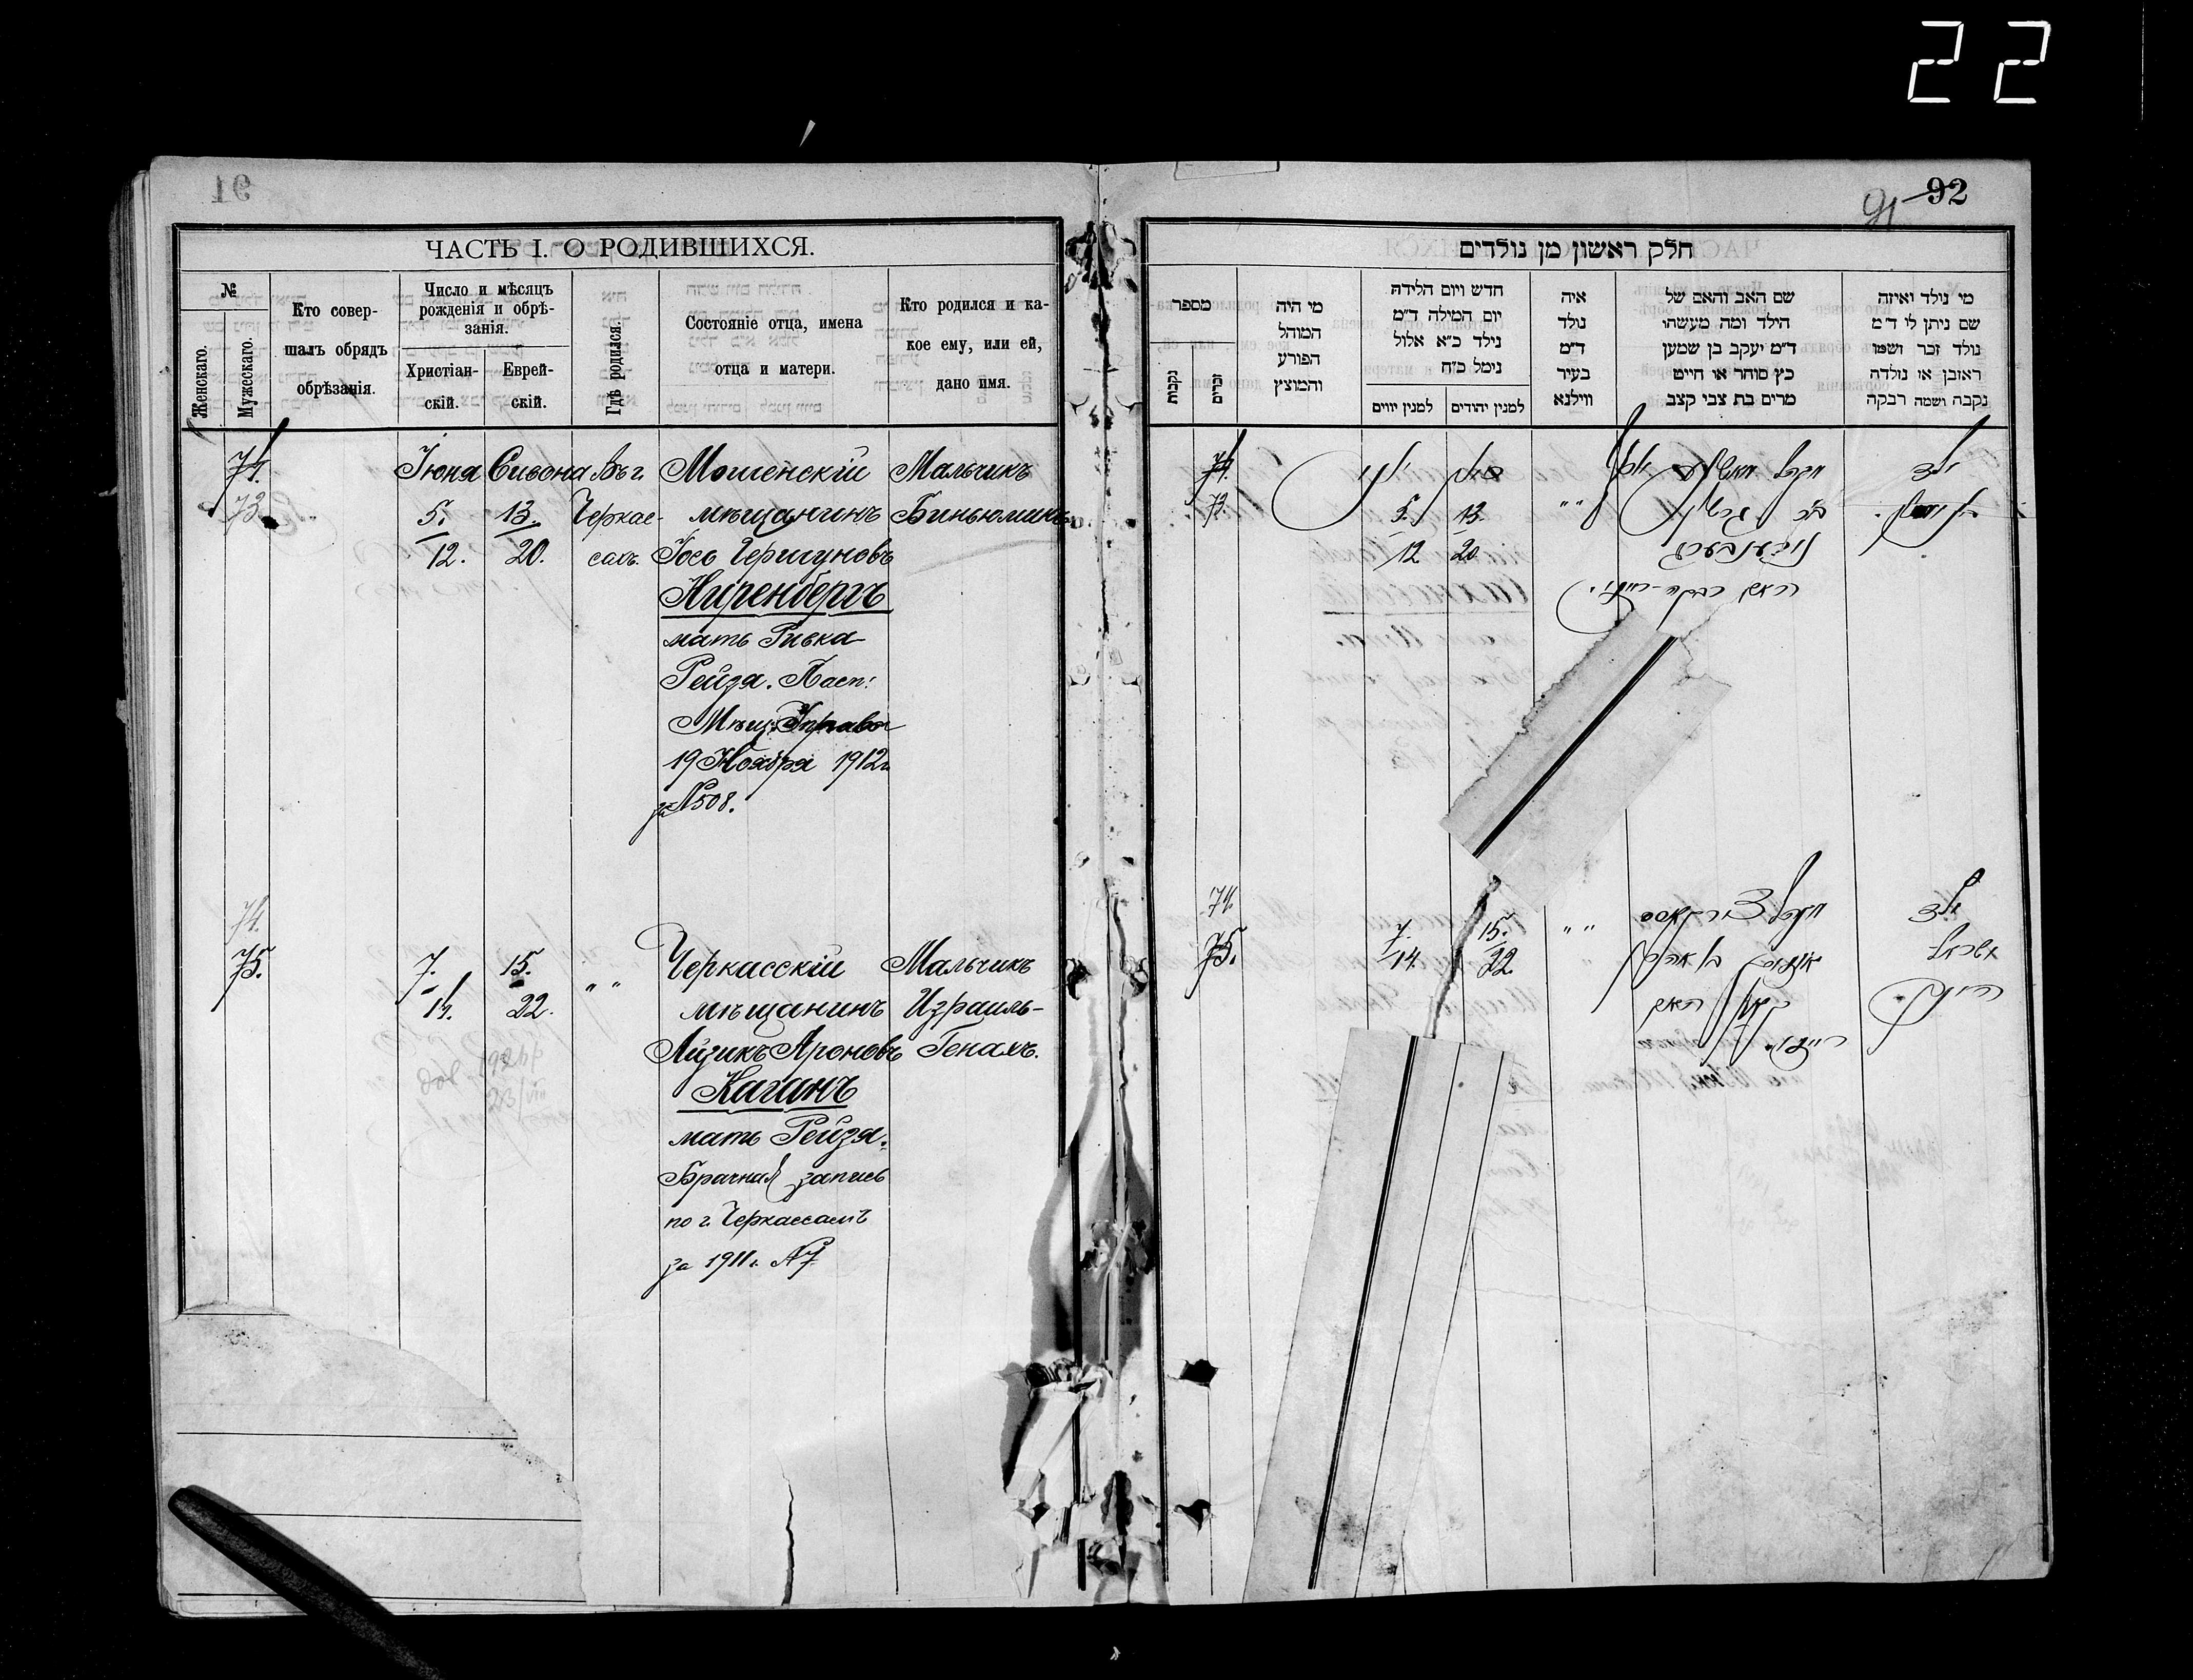 22
92
91
ЧАСТЬ I. О РОДИВШИХСЯ.
№
Женскаго.
Мужескаго.
Кто совер-
шалъ обрядъ
обрѣзанія.
Число и мѣсяцъ
рожденія и обрѣ-
занія.
Христіан-
скій.
Еврей-
скій.
Гдѣ родился.
Состояніе отца, имена
отца и матери.
Кто родился и ка-
кое ему, или ей,
дано имя.
74. Іюня Сивона Въ г. Мошенскій Мальчикъ
73 5. 13. Черкас- мѣщанинъ Биньюминъ
12. 20. сахъ. Іось Гершуновъ
Ниренбергъ
мать Ривка
Рейзя. Пасп:
Мѣщ. Управы
19 Ноября 1912 г.
за № 508.
74.
75. 7. 15. " " Черкасскій Мальчикъ
14. 22. мѣщанинъ Израиль-
Айзикъ Ароновъ Генахъ.
Каганъ
мать Рейзя.
Брачная запись
по г. Черкассамъ
за 1911 г. № 7
חלק ראשון מן נולדים
מי נולד ואיזה
שם ניתן לי ד״מ
נולד זכר ושמו
ראובן או נולדה
נקבה ושמה רבקה
שם האב והאם של
הילד ומה מעשהו
ד״מ יעקב בן שמעון
כץ סוחר או חייט
מרים בת צבי קצב
איה
נולד
ד״מ
בעיר
ווילנא
חדש ויום הלידה
יום המילה ד״מ
נילד כ״א אלול
נימל כ״ח
למנין יהודים
למנין יווים
מי היה
המוהל
הפורע
והמוצץ
מספר
זכרים
נקבות
ילד
74.
73. 5. 13. " "
12 20
נירענבערג
74.
ילד
75. 7. 15. " "
14. 22.
ישראל